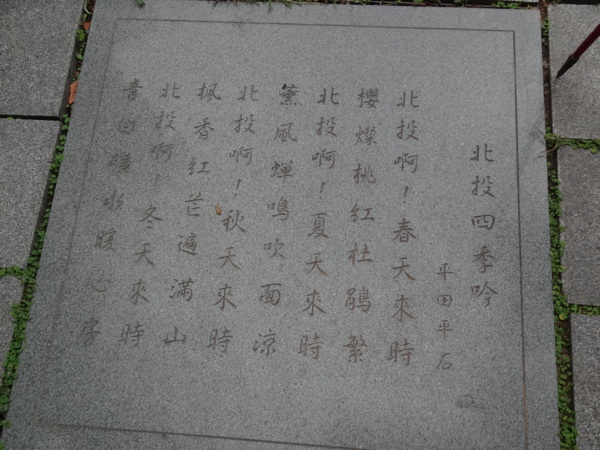 北投四季吟
平田平石
北投啊！春天來時
櫻燦桃紅杜鵑繁
北投啊！夏天來時
薰風蟬鳴吹面涼
北投啊！秋天來時
楓香紅芒遍滿山
北投啊！冬天來時
青白磺水暖心房